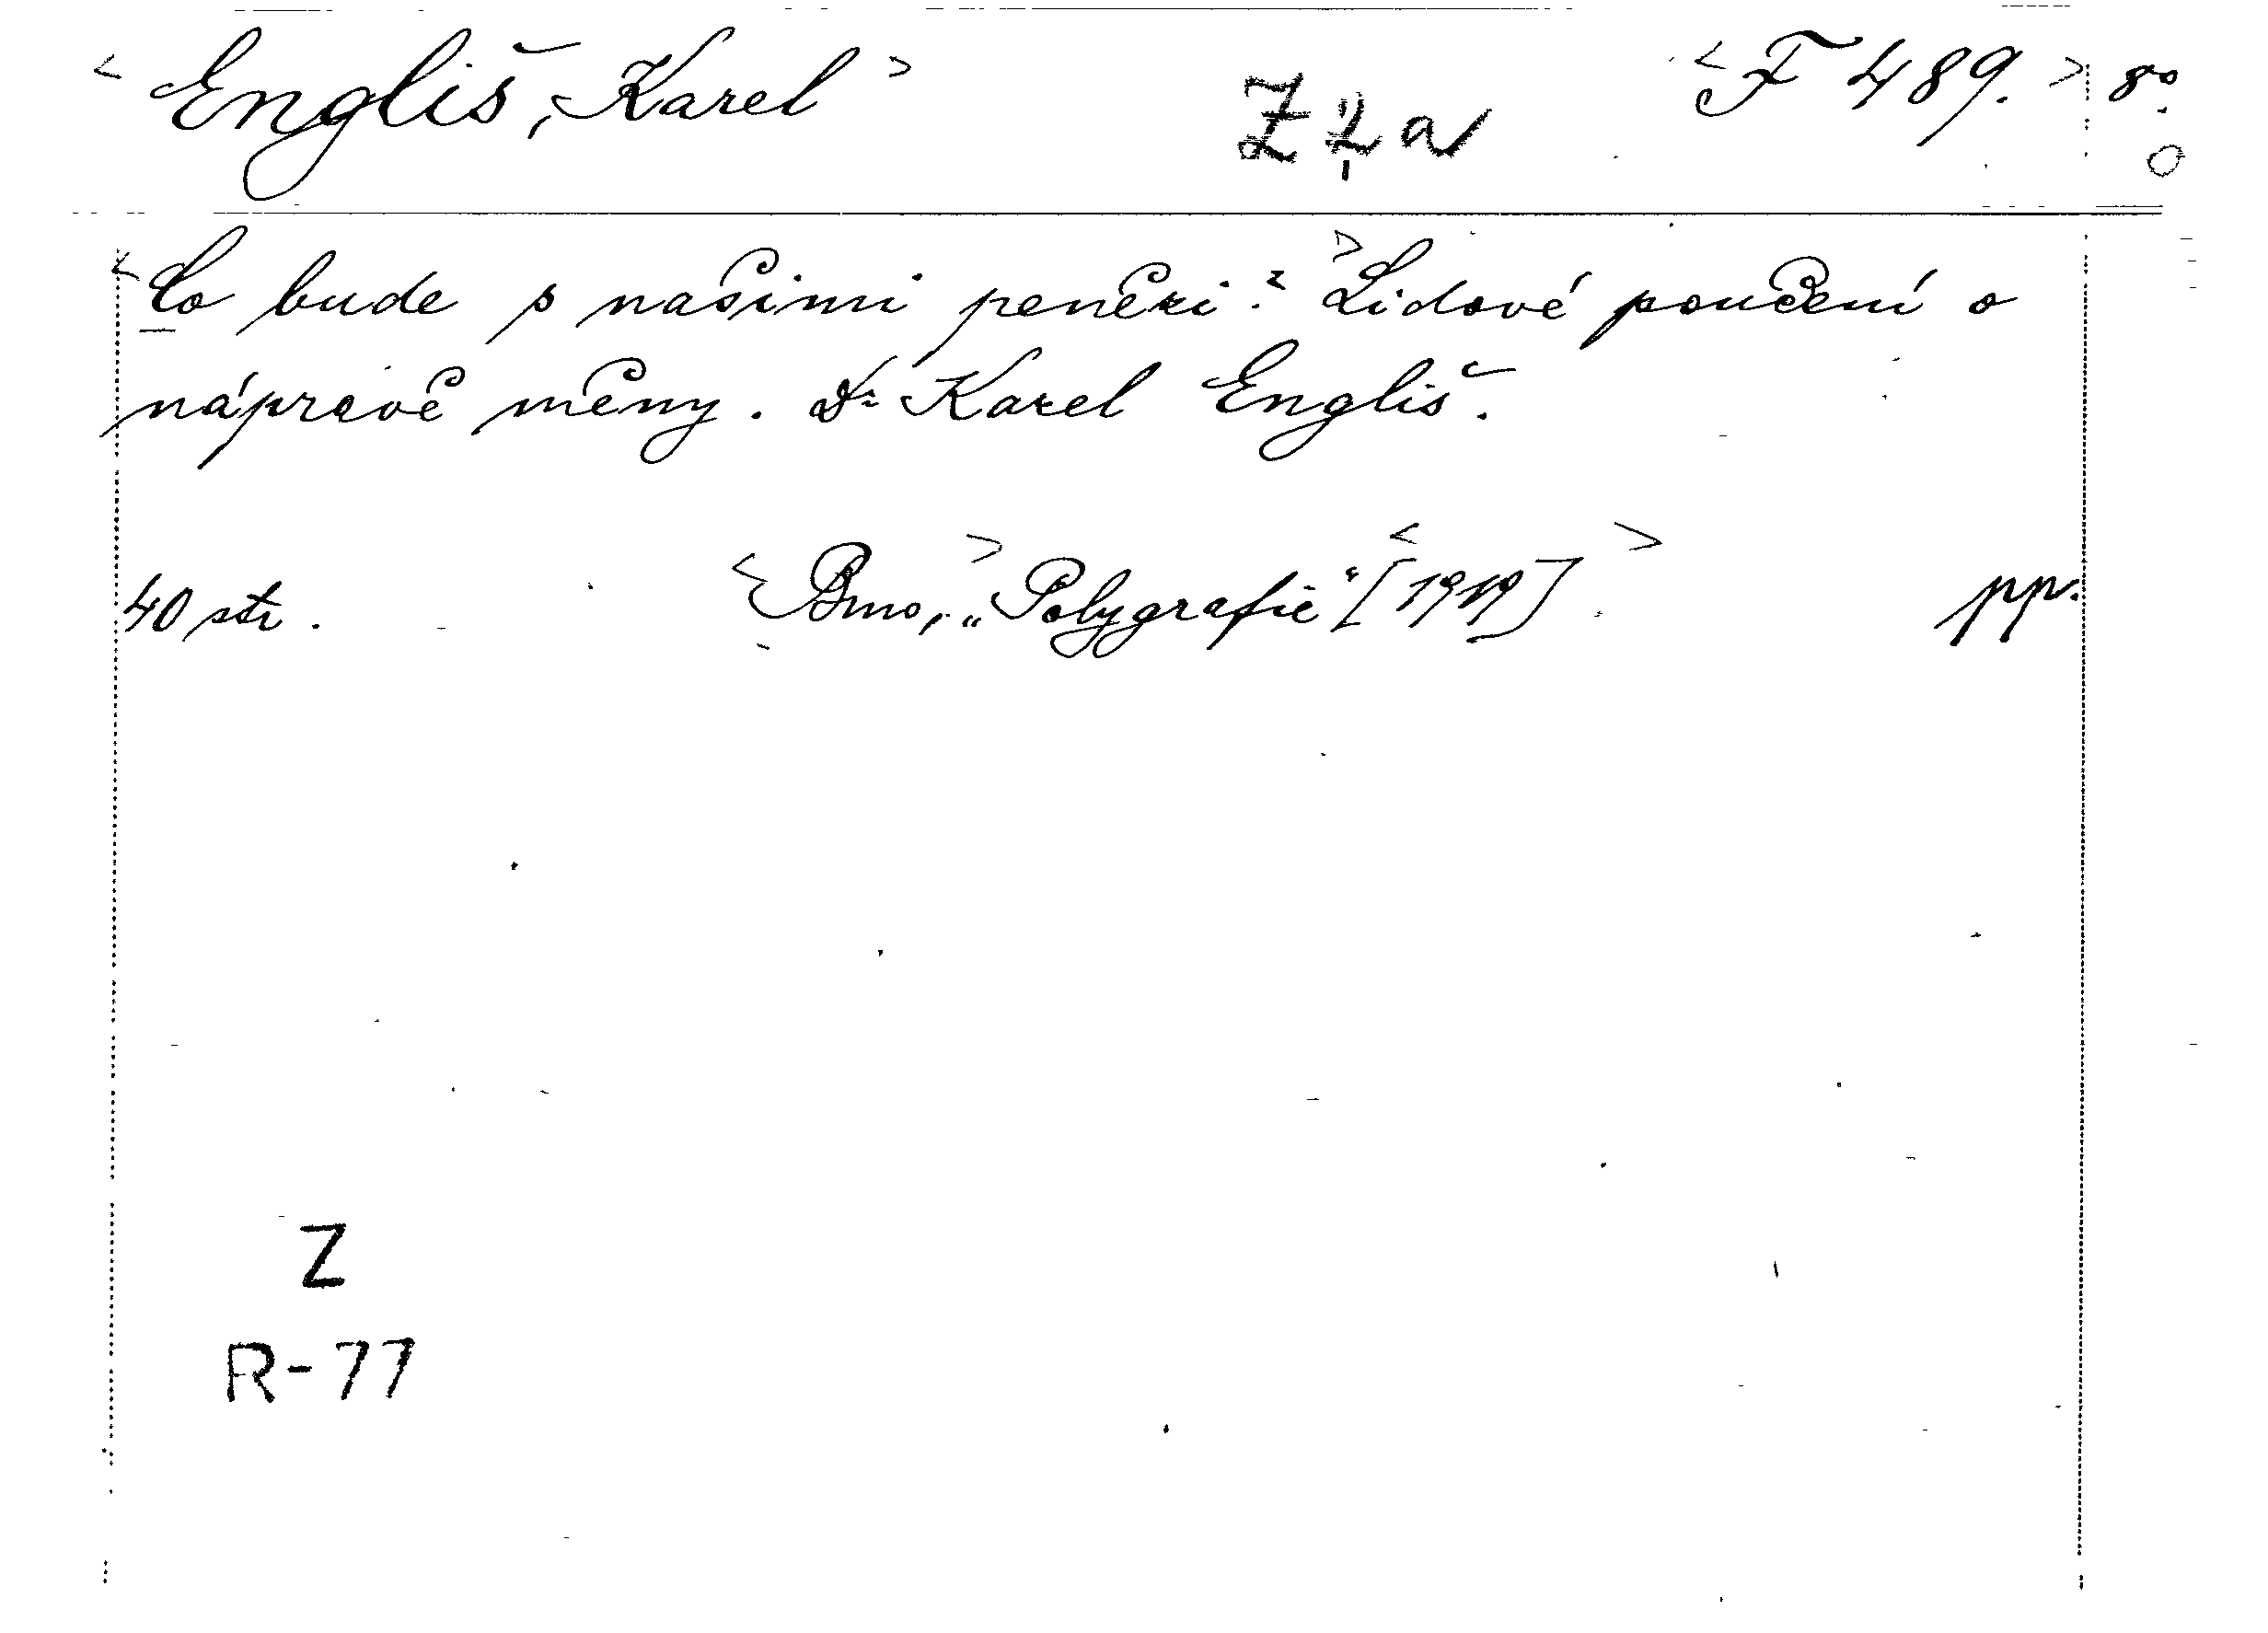 <Engliš, Karel> Z <F 489.> 8°.
<Co bude s našimi penězi?> Lidové poučení o
nápravě měny. Dr Karel Engliš.
40 str. <Brno,> „Polygrafie“ <[1919]> pp.
Z
R-77